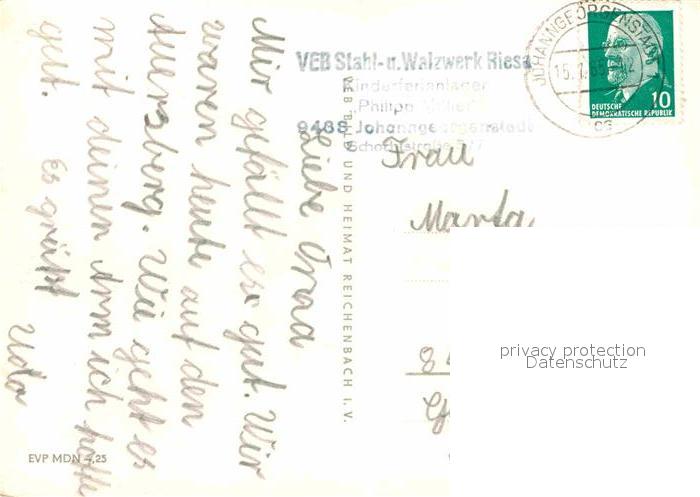 Liebe Oma
Mir gefällt es gut. Wir
waren heute auf den
Auersberg. Wie geht es
mit deinen Arm ich hoffe
gut.
es grüßt
Uta
VEB Stahl- u. Walzwerk Riesa
Kinderferienlager
„Philipp Müller“
9438 Johanngeorgenstadt
Schachtstraße
JOHANNGEORGENSTADT
DEUTSCHE
DEMOKRATISCHE REPUBLIK
10
VEB BILD UND HEIMAT REICHENBACH I. V.
Frau
Marta
privacy protection
Datenschutz
EVP MDN -,25